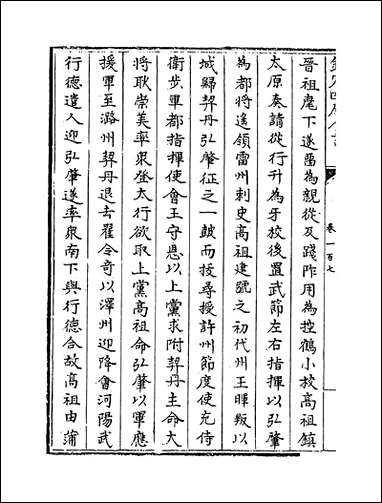 欽定四庫全書
卷一百七
晉祖麾下遂留為親從及踐阼用為控鶴小校高祖鎮
太原奏請從行升為牙校後置武節左右指揮以弘肇
為都將遙領雷州刺史高祖建號之初代州王暉叛以
城歸契丹弘肇征之一鼓而拔尋授許州節度使充侍
衛步軍都指揮使會王守恩以上黨求附契丹主命大
將耿崇美率衆登太行欲取上黨高祖命弘肇以軍應
援軍至潞州契丹退去翟令奇以澤州迎降會河陽武
行德遣人迎弘肇遂率衆南下與行德合故高祖由蒲